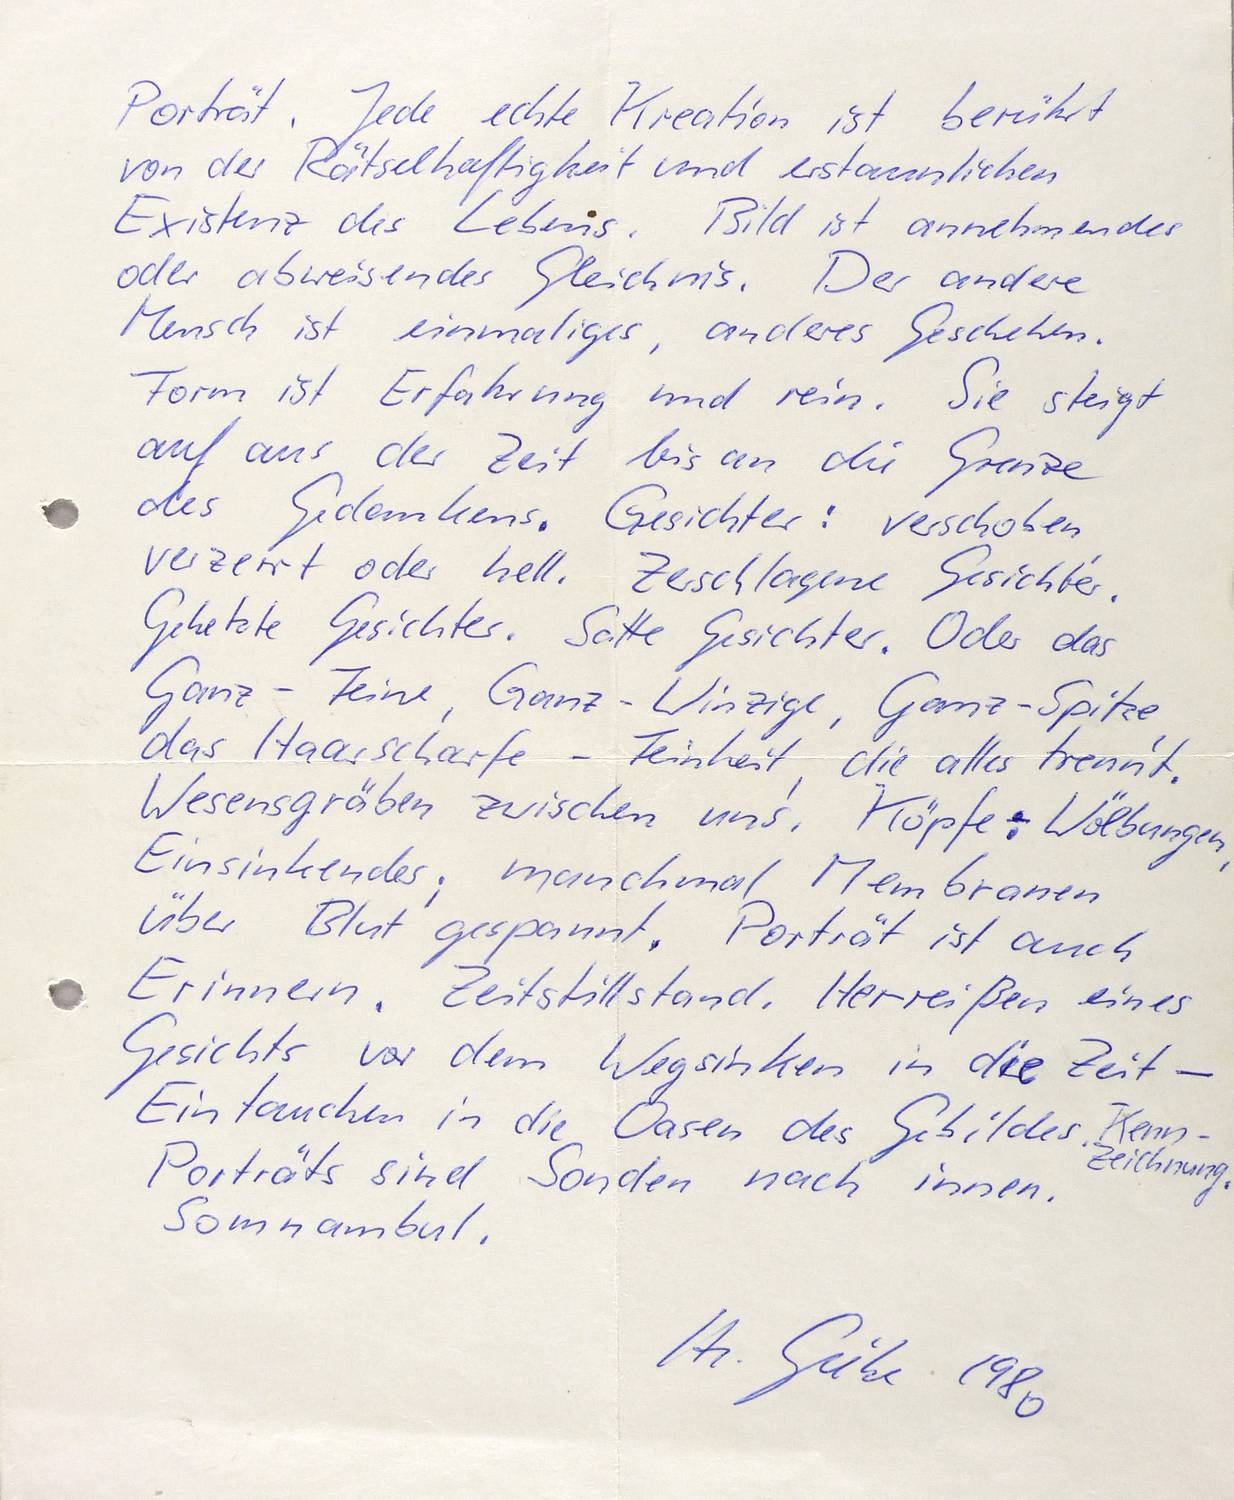 Porträt. Jede echte Kreation ist berührt
von der Rätselhaftigkeit und erstaunlichen
Existenz des Lebens. Bild ist annehmendes
oder abweisendes Gleichnis. Der andere
Mensch ist einmaliges, anderes Geschehen.
Form ist Erfahrung und rein. Sie steigt
auf aus der Zeit bis an die Grenze
des Gedankens. Gesichter: verschoben,
verzerrt oder hell. Zerschlagene Gesichter.
Gehetzte Gesichter. Satte Gesichter. Oder das
Ganz-Feine, Ganz-Winzige, Ganz-Spitze,
das Haarscharfe - Feinheit, die alles trennt.
Wesensgräben zwischen uns. Köpfe: Wölbungen,
Einsinkendes; manchmal Membranen
über Blut gespannt. Porträt ist auch
Erinnern. Zeitstillstand. Herreißen eines
Gesichts vor dem Wegsinken in die Zeit –
Eintauchen in die Oasen des Gebildes. Kenn-
zeichnung.
Porträts sind Sonden nach innen.
Somnambul.
1980